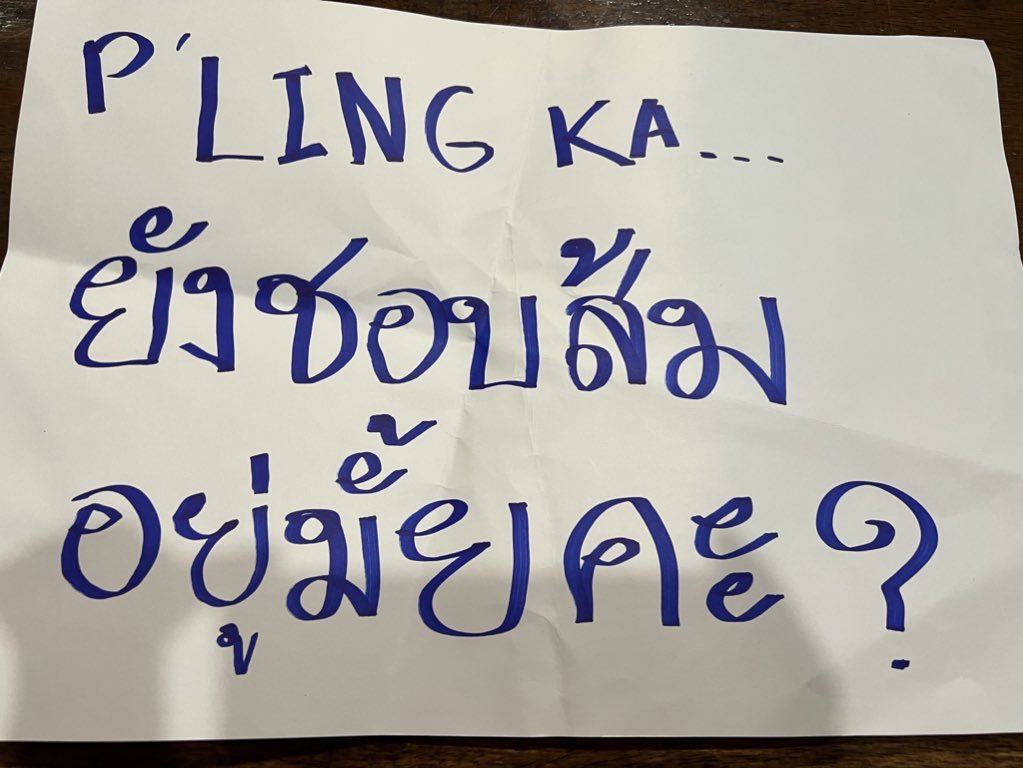 P'LING KA...
ยังชอบส้ม
อยู่มั้ยคะ?